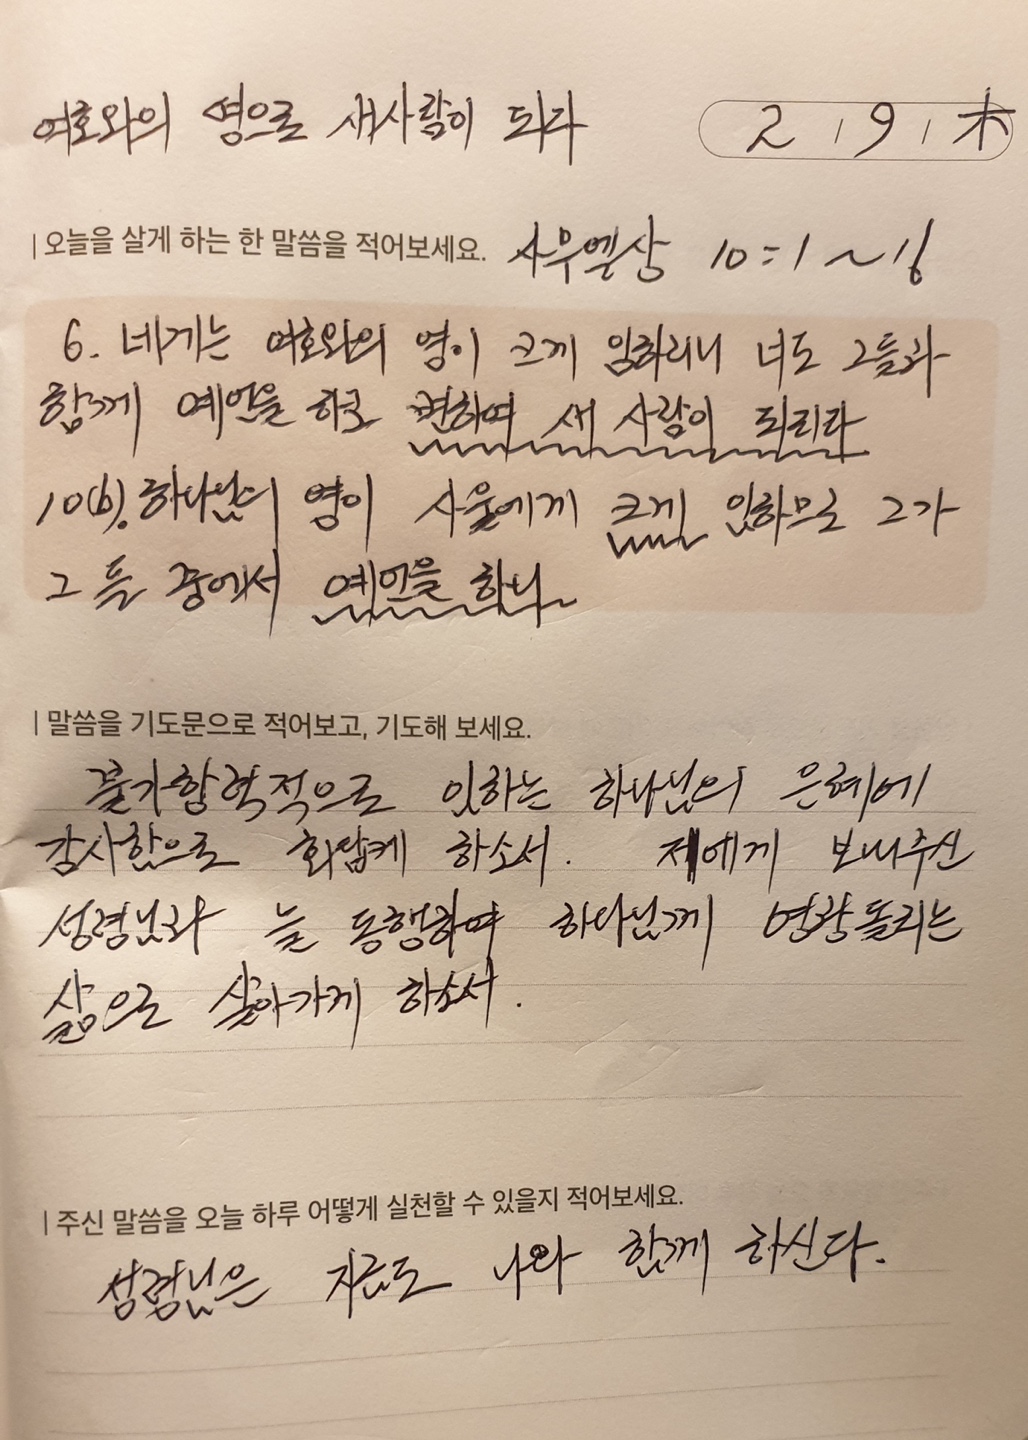 여호와의 영으로 새사람이 되다 2 / 9 / 木
| 오늘을 살게 하는 한 말씀을 적어보세요. 사무엘상 10:1~16
6. 네게는 여호와의 영이 크게 임하리니 너도 그들과
함께 예언을 하고 변하여 새 사람이 되리라
10(b). 하나님의 영이 사울에게 크게 임하므로 그가
그들 중에서 예언을 하니
| 말씀을 기도문으로 적어보고, 기도해 보세요.
불가항력적으로 임하는 하나님의 은혜에
감사함으로 화답케 하소서. 제에게 보내주신
성령님과 늘 동행하여 하나님께 영광돌리는
삶으로 살아가게 하소서.
| 주신 말씀을 오늘 하루 어떻게 실천할 수 있을지 적어보세요.
성령님은 지금도 나와 함께 하신다.